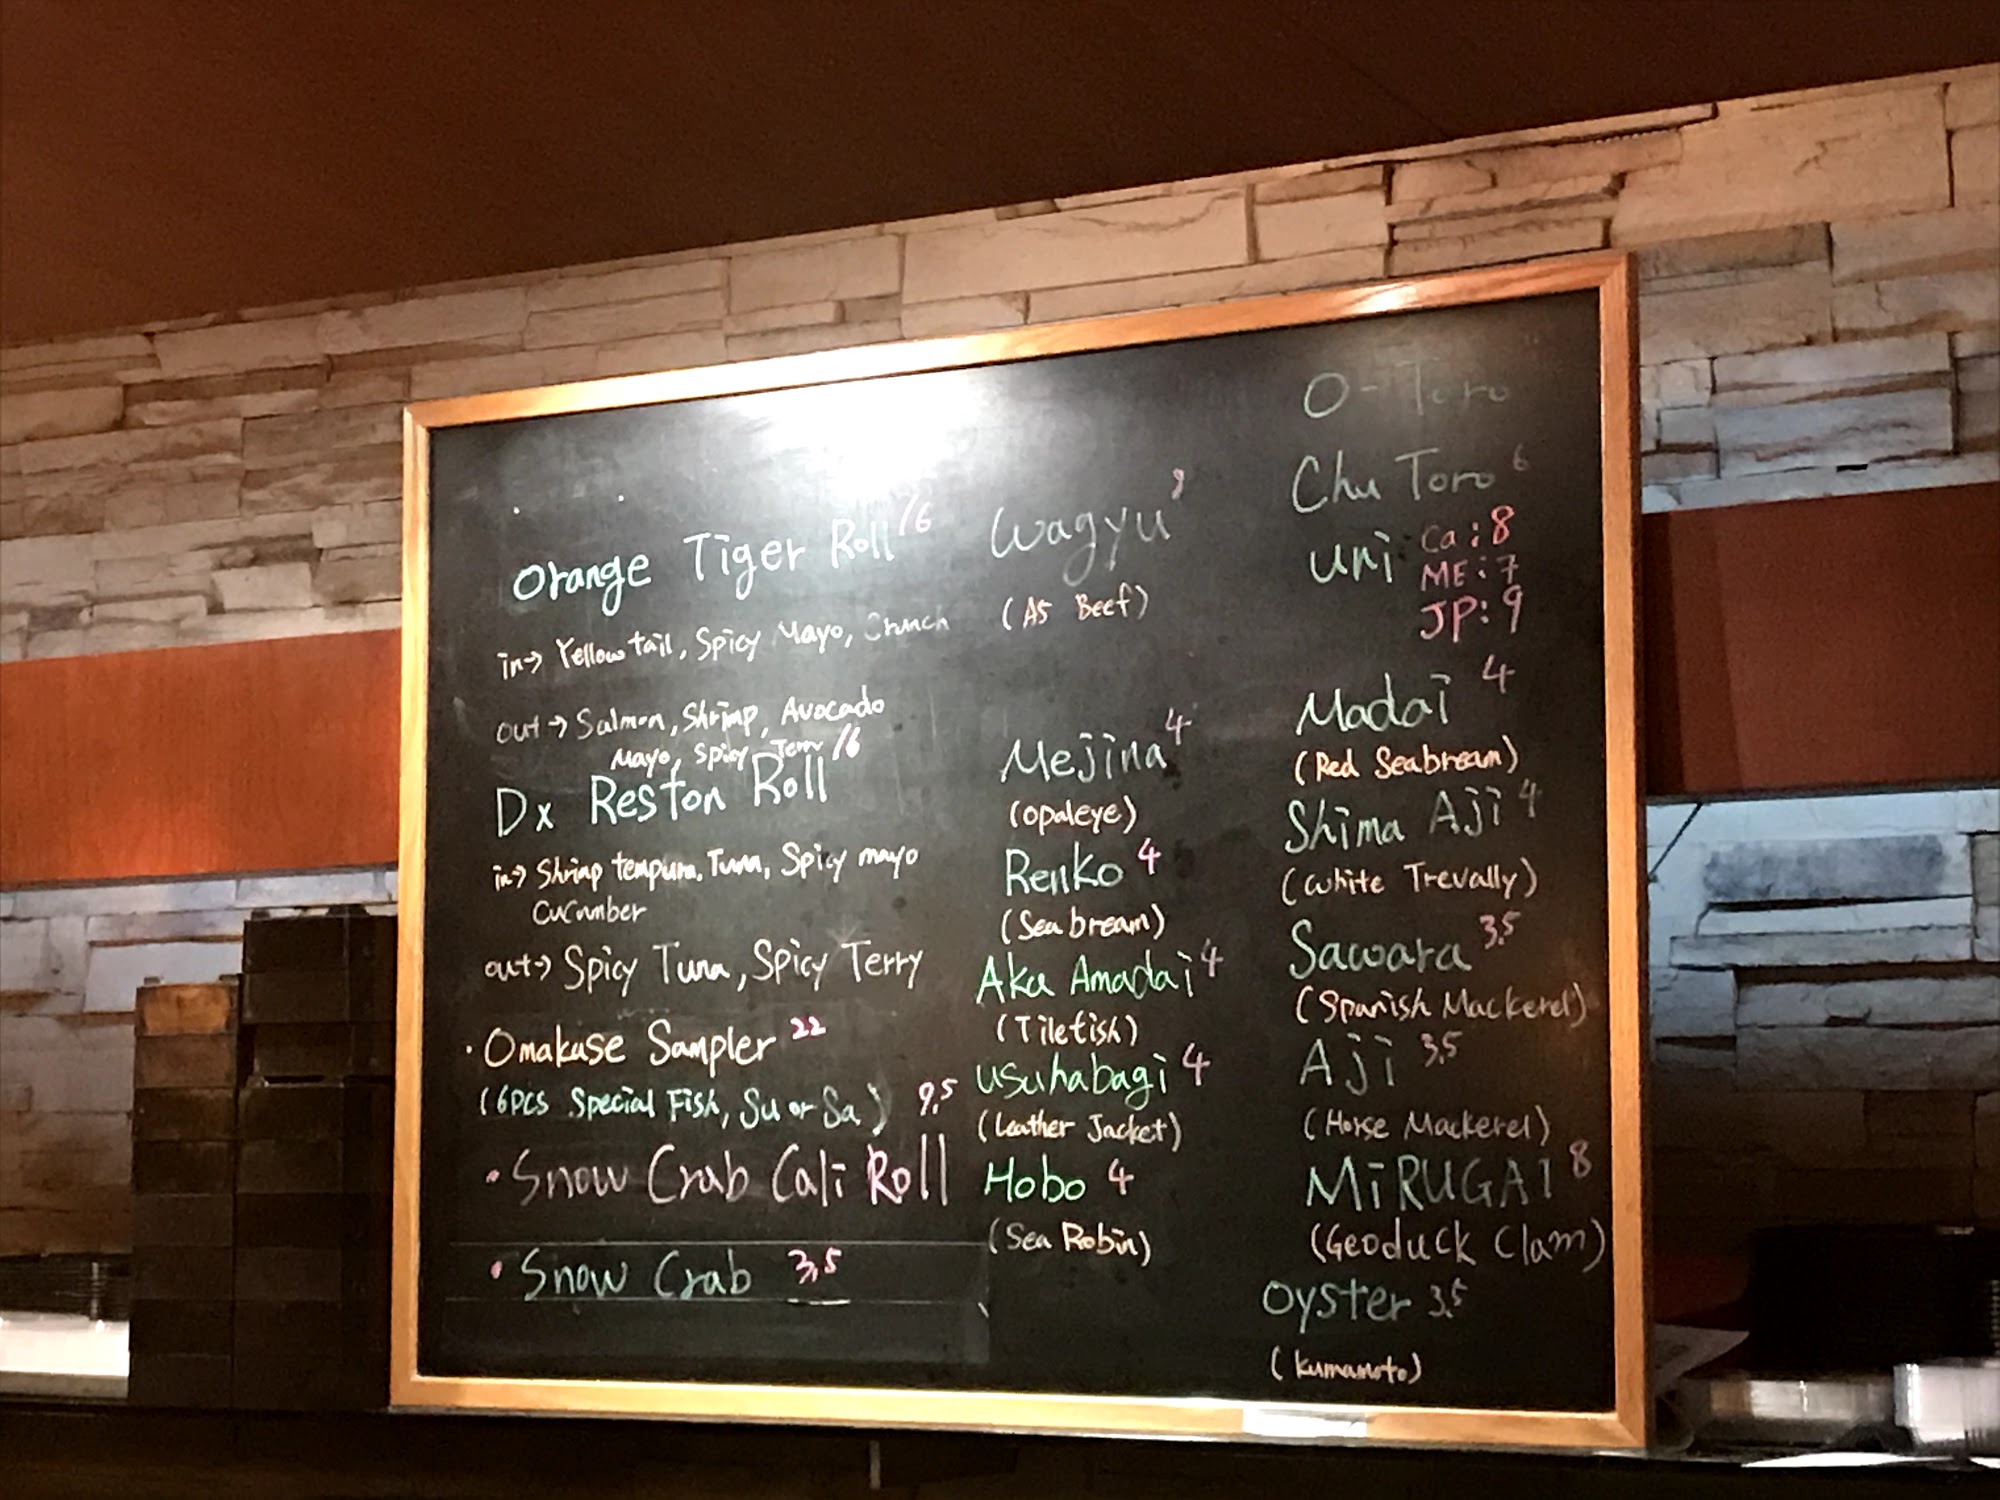 Orange Tiger Roll 16
in→ Yellowtail, Spicy Mayo, Crunch
out→ Salmon, Shrimp, Avocado
Mayo, Spicy Terry
Dx Reston Roll 16
in→ Shrimp tempura, Tuna, Spicy mayo
Cucumber
out→ Spicy Tuna, Spicy Terry
· Omakase Sampler 22
(6PCS Special Fish, Su or Sa)
· Snow Crab Cali Roll 9.5
· Snow Crab 3.5
Wagyu 9
(A5 Beef)
Mejina 4
(Opaleye)
Renko 4
(Sea bream)
Aka Amadai 4
(Tilefish)
Usuhabagi 4
(Leather Jacket)
Hobo 4
(Sea Robin)
O-Toro
Chu Toro 6
uni Ca: 8
ME: 7
JP: 9
Madai 4
(Red Seabream)
Shima Aji 4
(White Trevally)
Sawara 3.5
(Spanish Mackerel)
Aji 3.5
(Horse Mackerel)
MiRUGAI 8
(GEODUCK Clam)
Oyster 3.5
(Kumamoto)